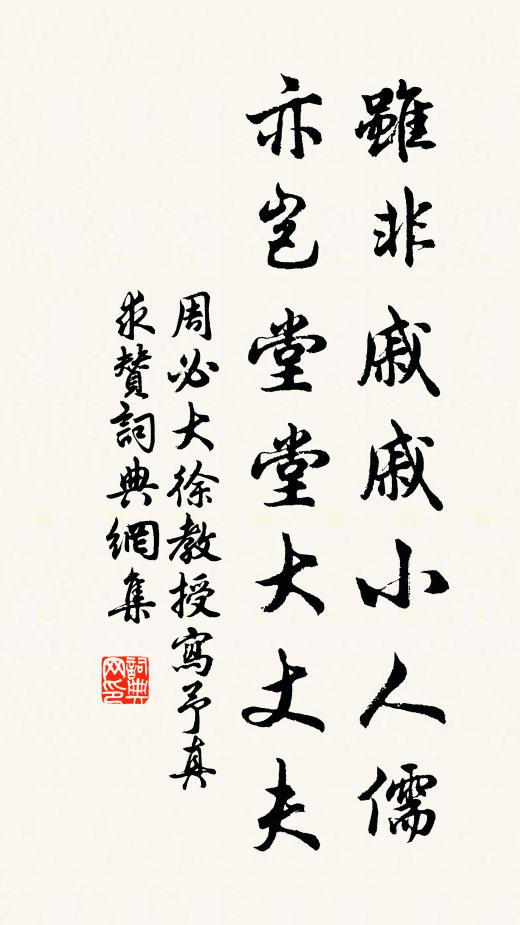 雖非戚戚小人儒
亦豈堂堂大丈夫
周必大徐教授寫予真
求贊詞典網集
詞典網印